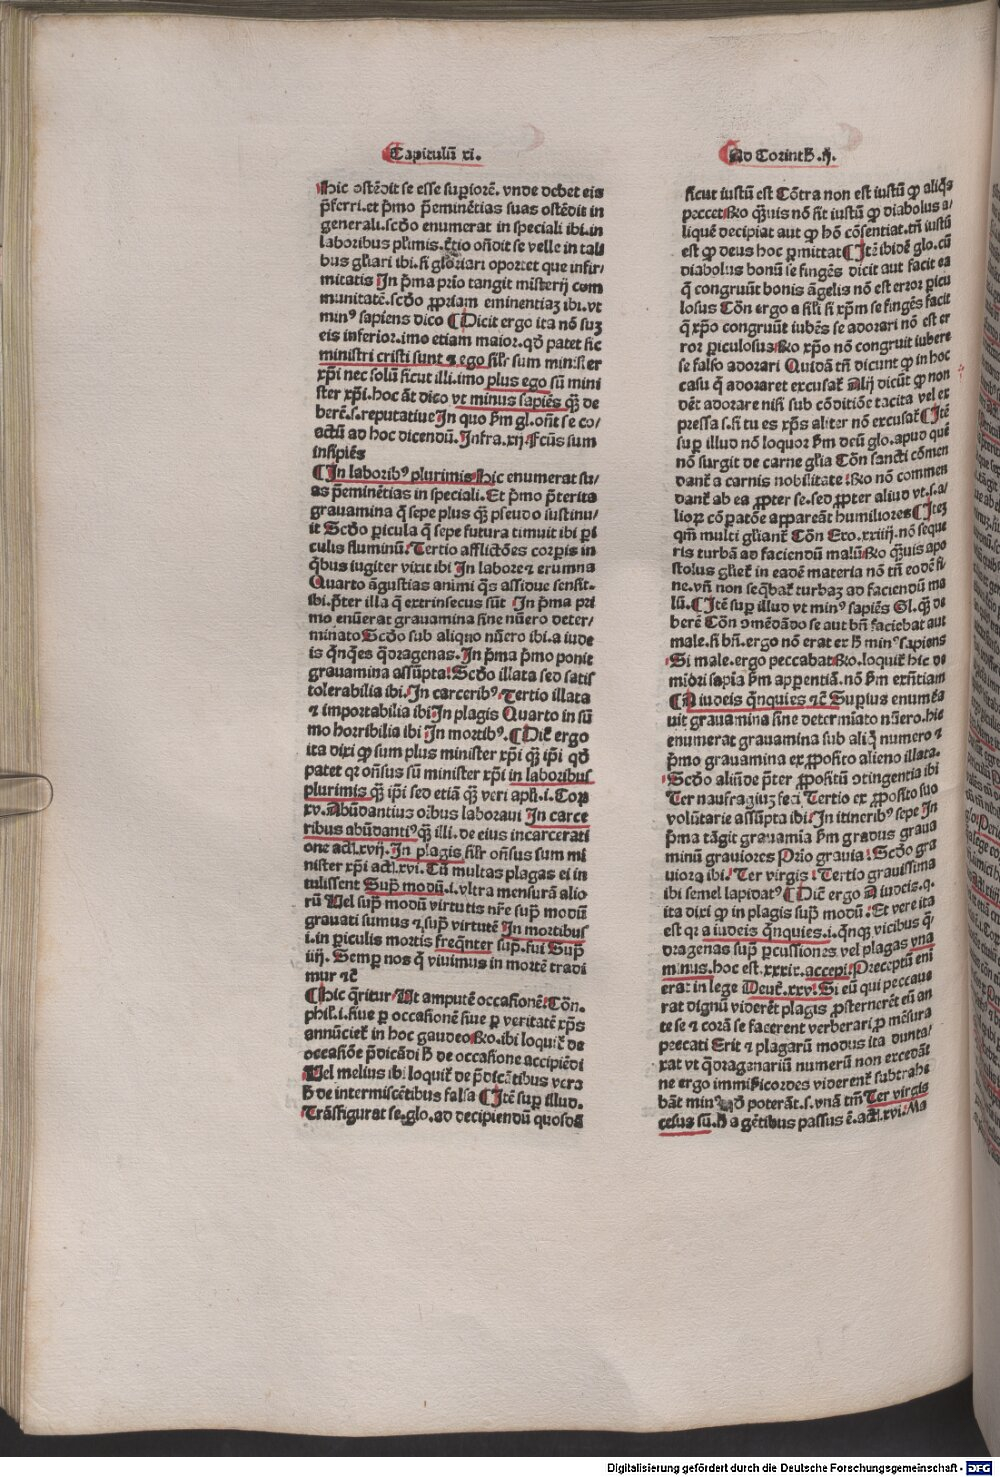 Capitulū xi.
Hic ostēdit se esse supiorē. vnde debet eis
p̄ferri. et p̄mo p̄eminētias suas ostēdit in
generali. scd̄o enumerat in speciali ibi. in
laboribus plimis. t̄tio on̄dit se velle in tali
bus gl̄iari ibi. si gloriari oportet que infir/
mitatis In p̄ma prio tangit misterij com
munitatē. scd̄o ꝓpriam eminentiaꝫ ibi. vt
minꝰ sapiens dico ¶ Dicit ergo ita nō suꝫ
eis inferior. imo etiam maior. qd̄ patet sic
ministri cristi sunt ⁊ ego sil̄r sum minister
xp̄i nec solū sicut illi. imo plus ego sū mini
ster xp̄i. hoc āt dico vt minus sapiēs qꝫ de
berē. s. reputatiue In quo b̄m gl. on̄t se co/
actū ad hoc dicendū. Infra. xij Fcūs sum
insipiēs
¶ In laboribꝰ plurimis Hic enumerat su/
as p̄eminētias in speciali. Et p̄mo p̄terita
grauamina q̄ sepe plus qꝫ pseudo sustinu/
it Scd̄o pericula q̄ sepe futura timuit ibi pi
culis fluminū. Tertio afflictōes corpis in
q̄bus iugiter vixit ibi In labore ⁊ erumna
Quarto āgustias animi q̄s assidue sensit.
ibi. p̄ter illa q̄ extrinsecus sūt In p̄ma pri
mo enūerat grauamina sine nūero deter/
minato Scd̄o sub aliquo nūero ibi. a iude
is qn̄qes q̄dragenas. In p̄ma p̄mo ponit
grauamina assūpta. Scd̄o illata sed satis
tolerabilia ibi. In carceribꝰ. Tertio illata
⁊ importabilia ibi In plagis Quarto in sū
mo horribilia ibi In mortibꝰ. ¶ Dic̄ ergo
ita dixi qꝫ sum plus minister xp̄i qꝫ ip̄i qd̄
patet qꝛ on̄sus sū minister xp̄i in laboribus
plurimis qꝫ ip̄i sed etiā qꝫ veri apl̄i. i. Cor.
xv. Abūdantius oībus laboraui In carce
ribus abūdantiꝰ qꝫ illi. de eius incarcerati
one act̄. xvij. In plagis sil̄r on̄sus sum mi
nister xp̄i act̄. xvi. Cū multas plagas ei in
tulissent Sup̄ modū. i. vltra mensurā alio
rū Vel sup̄ modū virtutis nr̄e sup̄ modū
grauati sumus ⁊ sup̄ virtutē In mortibus
i. in piculis mortis freqn̄ter sup̄. fui Sup̄
iiij. Semp nos q̄ viuimus in mortē tradi
mur ⁊c̄
¶ Hic q̄ritur Vt amputē occasionē. Cōn.
phil̄. i. siue p occasionē siue p veritatē xp̄s
annūciet̄ in hoc gaudeo Rō. ibi loquit̄ de
occasiōe p̄dicādi h̄ de occasione accipiēdi
Vel melius ibi loquit̄ de p̄dicātibus vera
h̄ de intermiscētibus falsa ¶ Itē sup illud.
Trāsfigurat se. glo. ad decipiendū quosdā
Ad Corinth̄. ij.
sicut iustū est Cōtra non est iustū qꝫ aliq̄s
peccet Rō qꝫuis nō sit iustū qꝫ diabolus a/
liquē decipiat aut qꝫ hō cōsentiat. tn̄ iustū
est qꝫ deus hoc pmittat ¶ Itē ibidē glo. cū
diabolus bonū se fingēs dicit aut facit ea
q̄ congruūt bonis āgelis nō est error picu
losus Cōn ergo a sil̄i si xp̄m se fingēs facit
q̄ xp̄o congruūt iubēs se adorari nō est er
ror piculosus Rō xp̄o nō congruit iubere
se falso adorari Quidā tn̄ dicunt qꝫ in hoc
casu q̄ adoraret excusat̄ Alij dicūt qꝫ non
dēt adorare nisi sub cōditiōe tacita vel ex
pressa s. si tu es xp̄s aliter nō excusat̄ ¶ Itē
sup illud nō loquor b̄m deū glo. apud quē
nō surgit de carne gl̄ia Cōn sancti cōmen
dant̄ a carnis nobilitate. Rō nō commen
dant̄ ab ea ꝓpter se. sed ꝓpter aliud vt. s. a/
lioꝝ cōpatōe appareāt humiliores ¶ Iteꝫ
qm̄ multi gl̄iant̄ Cōn Exo. xxiiij. nō seque
ris turbā ad faciendū malū Rō qꝫuis apo
stolus gl̄iet̄ in eadē materia nō tn̄ eodē fi
ne. vn̄ non seq̄bat̄ turbaꝫ ad faciendū ma
lū. ¶ Itē sup illud vt minꝰ sapiēs Gl. qꝫ de
berē Cōn cōmēdādo se aut bn̄ faciebat aut
male. si bn̄. ergo nō erat ex h̄ minꝰ sapiens
Si male. ergo peccabat Rō. loquit̄ hic de
miori sapīa b̄m apparentiā. nō b̄m exn̄tiam
¶ A iudeis qn̄quies ⁊c̄ Supius enumēa
uit grauamina sine determiato nūero. hic
enumerat grauamina sub aliq̄ numero ⁊
p̄mo grauamina ex ꝓposito alieno illata.
Scd̄o aliūde p̄ter ꝓpositū ↄtingentia ibi
Ter naufragiuꝫ feci Tertio ex ꝓposito suo
volūtarie assūpta ibi. In itineribꝰ sepe In
p̄ma tāgit grauamīa b̄m gradus graua
minū grauiores Prio grauia. Scd̄o gra
uiora ibi. Ter virgis. Tertio grauissima
ibi semel lapidatꝰ ¶ Dic̄ ergo A iudeis. q.
ita dixi qꝫ in plagis sup̄ modū. Et vere ita
est qꝛ a iudeis qn̄quies. i. qn̄qꝫ vicibus q̄
dragenas sup̄ pcussiones vel plagas vna
minus. hoc est. xxxix. accepi. Preceptū eni
erat in lege Deut̄. xxv. Si eū qui peccaue
rat dignū viderēt plagis ꝓsternerēt eū an
te se ⁊ corā se facerent verberari ꝓ mēsura
peccati Erit ⁊ plagarū modus ita dunta/
xat vt q̄dragenariū numerū non excedāt
ne ergo immisicordes viderent̄ subtrahe
bāt minꝰ qd̄ poterāt. s. vnā tm̄ Ter virgis
cesus sū. h̄ a gētibus passus ē. act̄. xvi. Ma
Digitalisierung gefördert durch die Deutsche Forschungsgemeinschaft - DFG